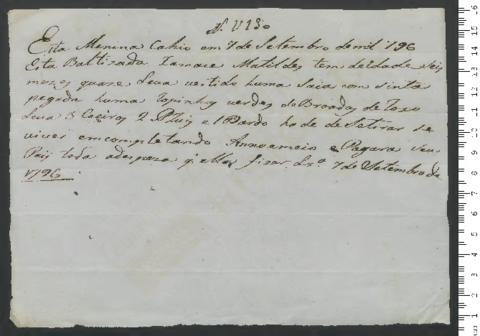 N. V130
Esta Menina Cahio em 7 de Setembro de mil 796
Esta Baltizada Xamace Matildes tem de idade seis
mezes quaze Leva vestido huma Saia com sinta
pegada huma Topinha verde de
Leva 3 Coeiros 2 e 1 Pardo ha de se tirar se
viver em completando Anno e meio e Pagara seu
Pay toda a despeza q ella fizer Lxª 7 de Setembro de
1796